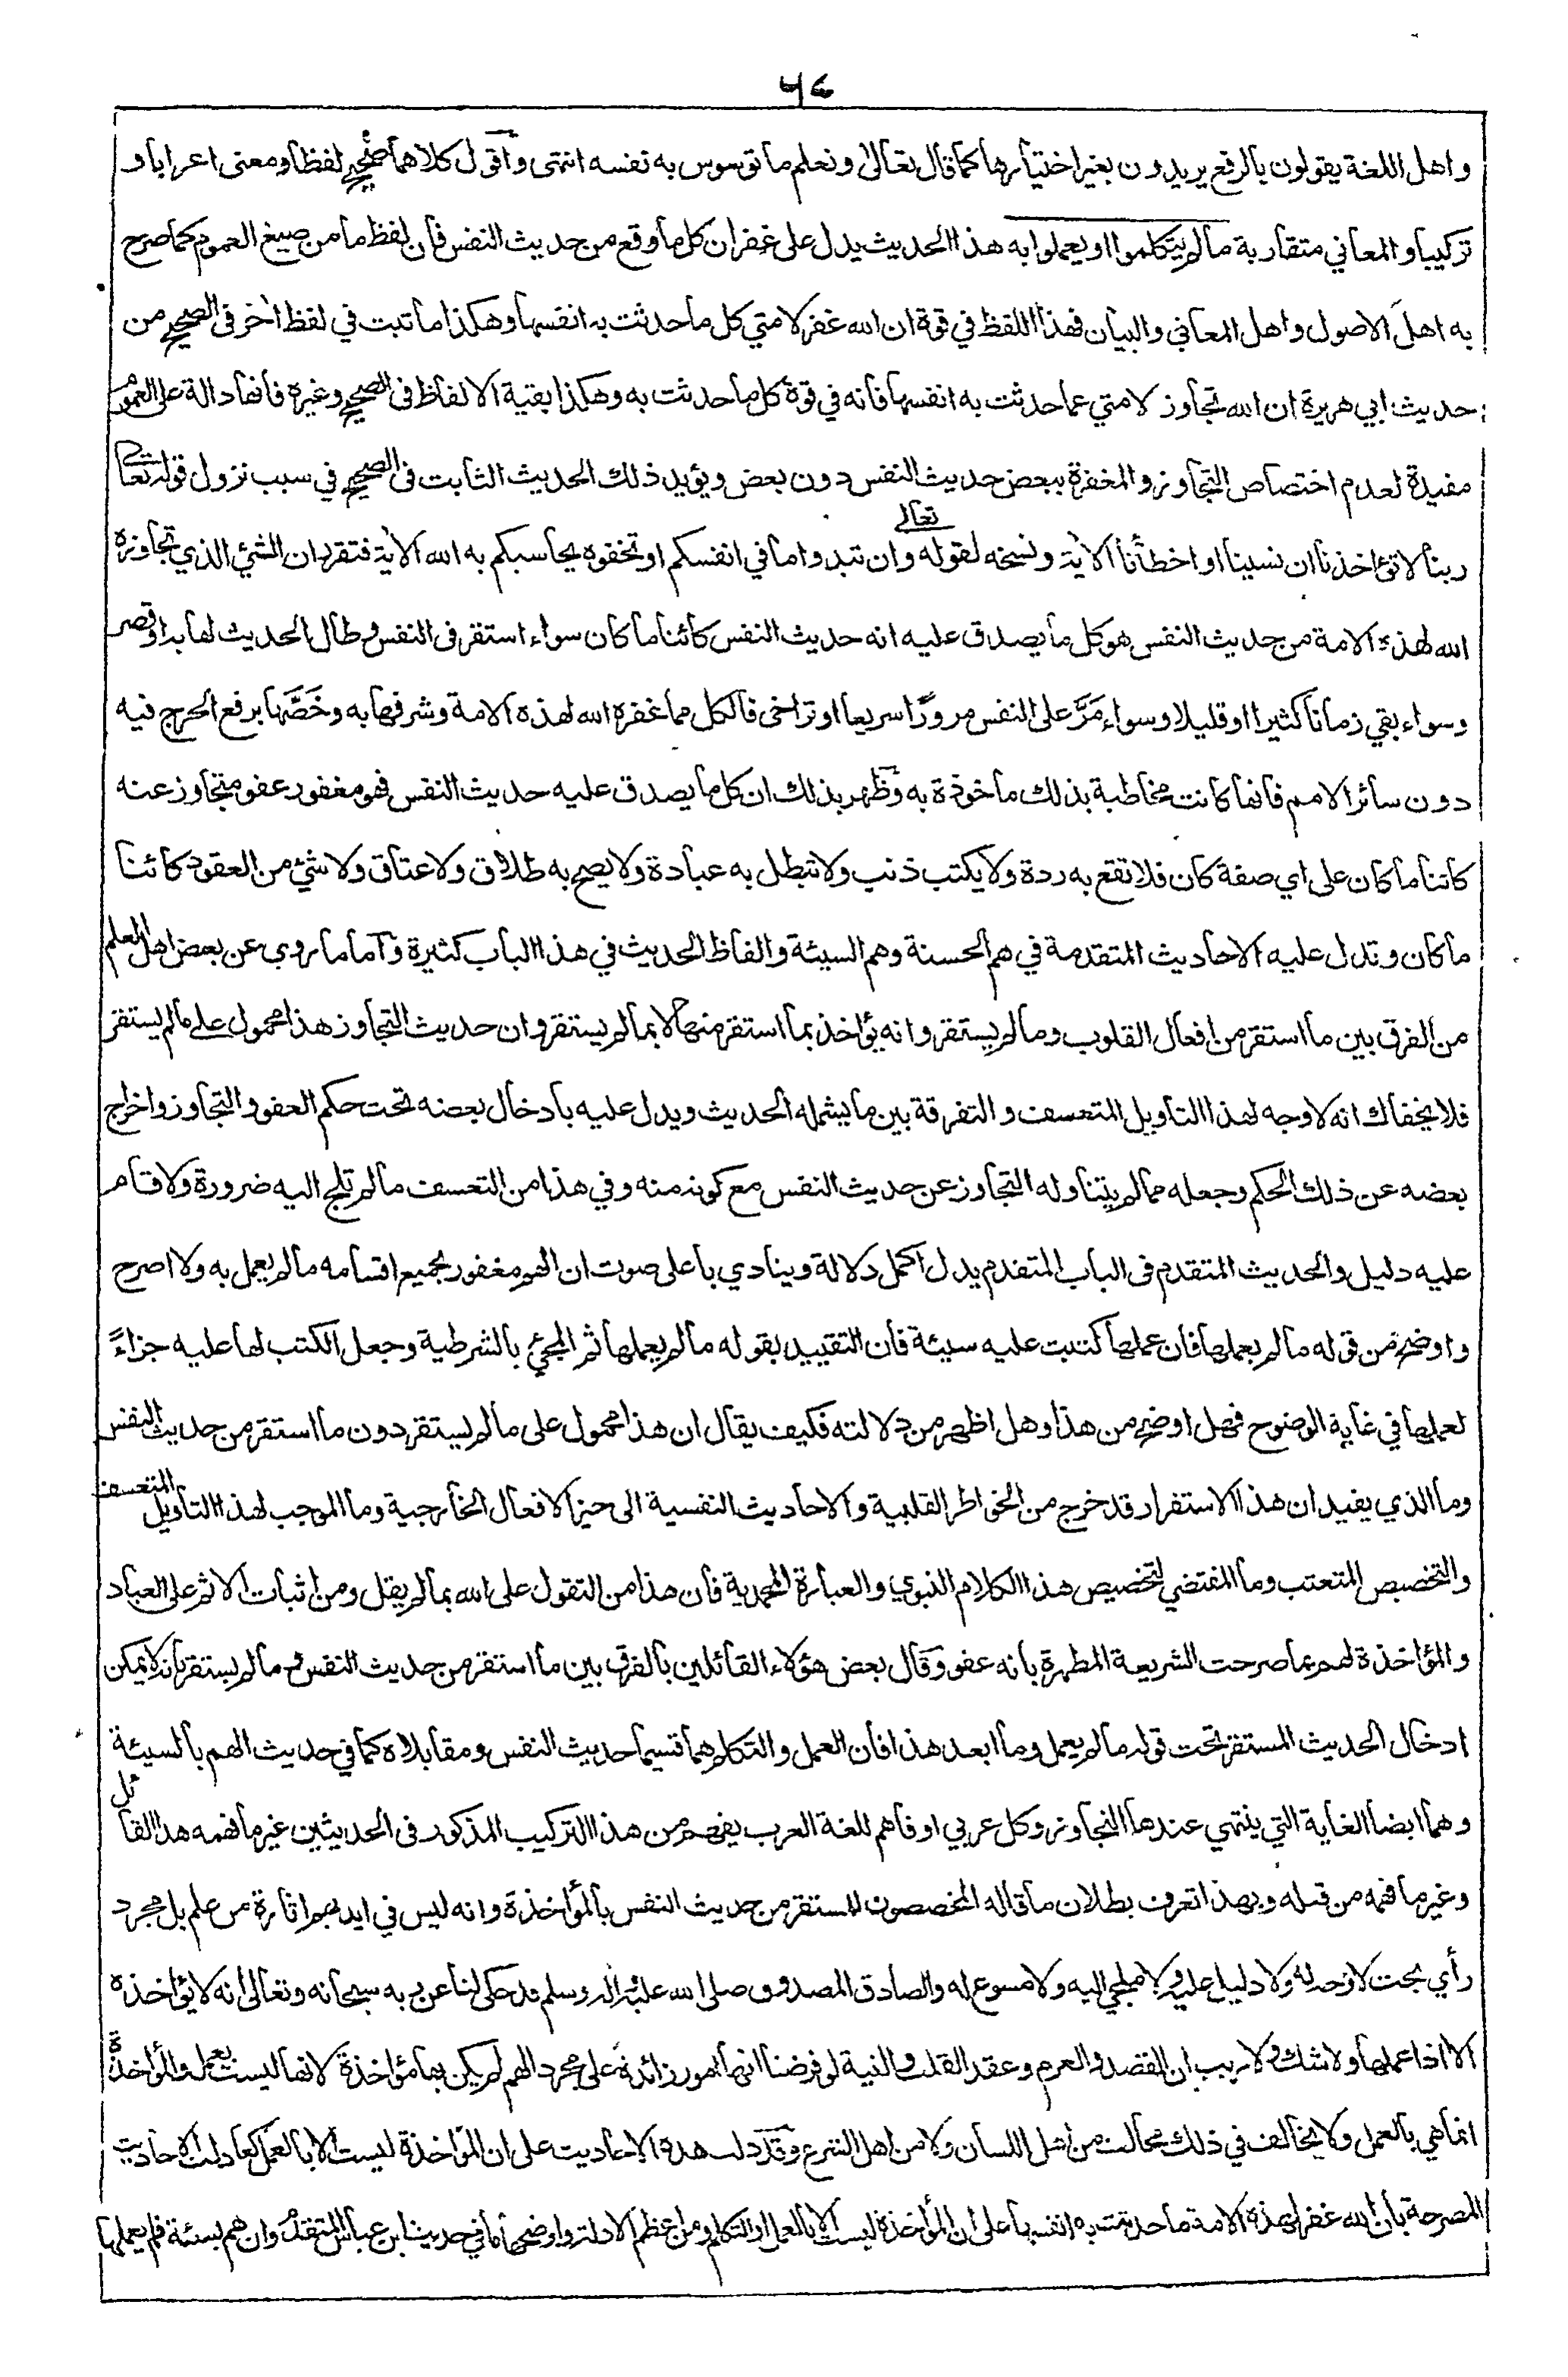 ٥٦
واهل اللغة يقولون بالرفع يريدون بغير اختيارها كما قال تعالى ونعلم ما توسوس به نفسه انتهى واقول كلاهما صحيح لفظا ومعنى اعرابا و
تركيبا والمعاني متقاربة ما لم يتكلموا او يعملوا به هذا الحديث يدل على غفران كل ما وقع من حديث النفس فان لفظ ما من صيغ العموم كما صرح
به اهل الاصول واهل المعاني والبيان فهذا اللفظ في قوة ان الله غفر لامتي كل ما حدثت به انفسها وهكذا ما ثبت في لفظ اخر في الصحيح من
حديث ابي هريرة ان الله تجاوز لامتي عما حدثت به انفسها فانه في قوة كل ما حدثت به وهكذا بقية الالفاظ في الصحيح وغيره فانها دالة على العموم
مفيدة لعدم اختصاص التجاوز والمغفرة ببعض حديث النفس دون بعض ويؤيد ذلك الحديث الثابت في الصحيح في سبب نزول قوله تعالى
ربنا لا تؤاخذنا ان نسينا او اخطأنا الاية ونسخه لقوله تعالى وان تبدوا ما في انفسكم او تخفوه يحاسبكم به الله الاية فتقرر ان الشئ الذي تجاوزه
الله لهذه الامة من حديث النفس هو كل ما يصدق عليه انه حديث النفس كائنا ما كان سواء استقر في النفس وطال الحديث لها به او قصر
وسواء بقي زمانا كثيرا او قليلا وسواء مَرَّ على النفس مرورًا سريعا او تراخى فالكل مما غفره الله لهذه الامة وشرفها به وخَصَّها برفع الحرج فيه
دون سائر الامم فانها كانت مخاطبة بذلك ماخوذة به وظهر بذلك ان كل ما يصدق عليه حديث النفس فهو مغفور عفو متجاوز عنه
كائنا ما كان على اي صفة كان فلا تقع به ردة ولا يكتب ذنب ولا تبطل به عبادة ولا يصح به طلاق ولا عتاق ولا شئ من العقود كائنا
ما كان وتدل عليه الاحاديث المتقدمة في هم الحسنة وهم السيئة والفاظ الحديث في هذا الباب كثيرة واما ما روي عن بعض اهل العلم
من الفرق بين ما استقر من افعال القلوب وما لم يستقر وانه يؤاخذ بما استقر منها لا بما لم يستقر وان حديث التجاوز هذا محمول على ما لم يستقر
فلا يخفاك انه لا وجه لهذا التاويل المتعسف والتفرقة بين ما يشمله الحديث ويدل عليه بادخال بعضه تحت حكم العفو والتجاوز واخراج
بعضه عن ذلك الحكم وجعله مما لم يتناوله التجاوز عن حديث النفس مع كونه منه وفي هذا من التعسف ما لم تلج اليه ضرورة ولا قام
عليه دليل والحديث المتقدم في الباب المتقدم يدل اكمل دلالة وينادي باعلى صوت ان الهم مغفور بجميع اقسامه ما لم يعمل به ولا اصرح
واوضح من قوله ما لم يعملها فان عملها كتبت عليه سيئة فان التقييد بقوله ما لم يعملها ثم المجئ بالشرطية وجعل الكتب لها عليه جزاءً
لعملها في غاية الوضوح فهل اوضح من هذا وهل اظهر من دلالته فكيف يقال ان هذا محمول على ما لم يستقر دون ما استقر من حديث النفس
وما الذي يفيد ان هذا الاستقرار قد خرج من الخواطر القلبية والاحاديث النفسية الى حيز الافعال الخارجية وما الموجب لهذا التاويل المتعسف
والتخصيص المتعتب وما المقتضي لتخصيص هذا الكلام النبوي والعبارة المحمدية فان هذا من التقول على الله بما لم يقل ومن اثبات الاثم على العباد
والمؤاخذة لهم بما صرحت الشريعة المطهرة بانه عفو وقال بعض هؤلاء القائلين بالفرق بين ما استقر من حديث النفس وما لم يستقر بانه لا يمكن
ادخال الحديث المستقر تحت قوله ما لم يعمل وما ابعد هذا فان العمل والتكلم هما قسيما حديث النفس ومقابلاه كما في حديث الهم بالسيئة
وهما ايضا الغاية التي ينتهي عندها التجاوز وكل عربي او فاهم للغة العرب يفهم من هذا التركيب المذكور في الحديثين غير ما فهمه هذا القائل
وغير ما فهمه من قبله وبهذا تعرف بطلان ما قاله المخصصون للمستقر من حديث النفس بالمؤاخذة وانه ليس في ايديهم اثارة من علم بل مجرد
رأي بحت لا وجه له ولا دليل عليه ولا ملجي اليه ولا مسوغ له والصادق المصدوق صلى الله عليه واله وسلم قد حكى لنا عن ربه سبحانه وتعالى انه لا يؤاخذه
الا اذا عملها ولا شك ولا ريب ان القصد والعزم وعقد القلب والنية لو فرضنا انها امور زائدة على مجرد الهم لم يكن بها مؤاخذة لانها ليست بعمل والمؤاخذة
انما هي بالعمل ولا يخالف في ذلك مخالف من اهل اللسان ولا من اهل الشرع وقد دلت هذه الاحاديث على ان المؤاخذة ليست الا بالعمل كما دلت الاحاديث
المصرحة بان الله غفر لهذه الامة ما حدثت به انفسها على ان المؤاخذة ليست الا بالعمل او التكلم ومن اعظم الادلة واوضحها ما في حديث ابن عباس المتقدم وان هم بسيئة فلم يعملها